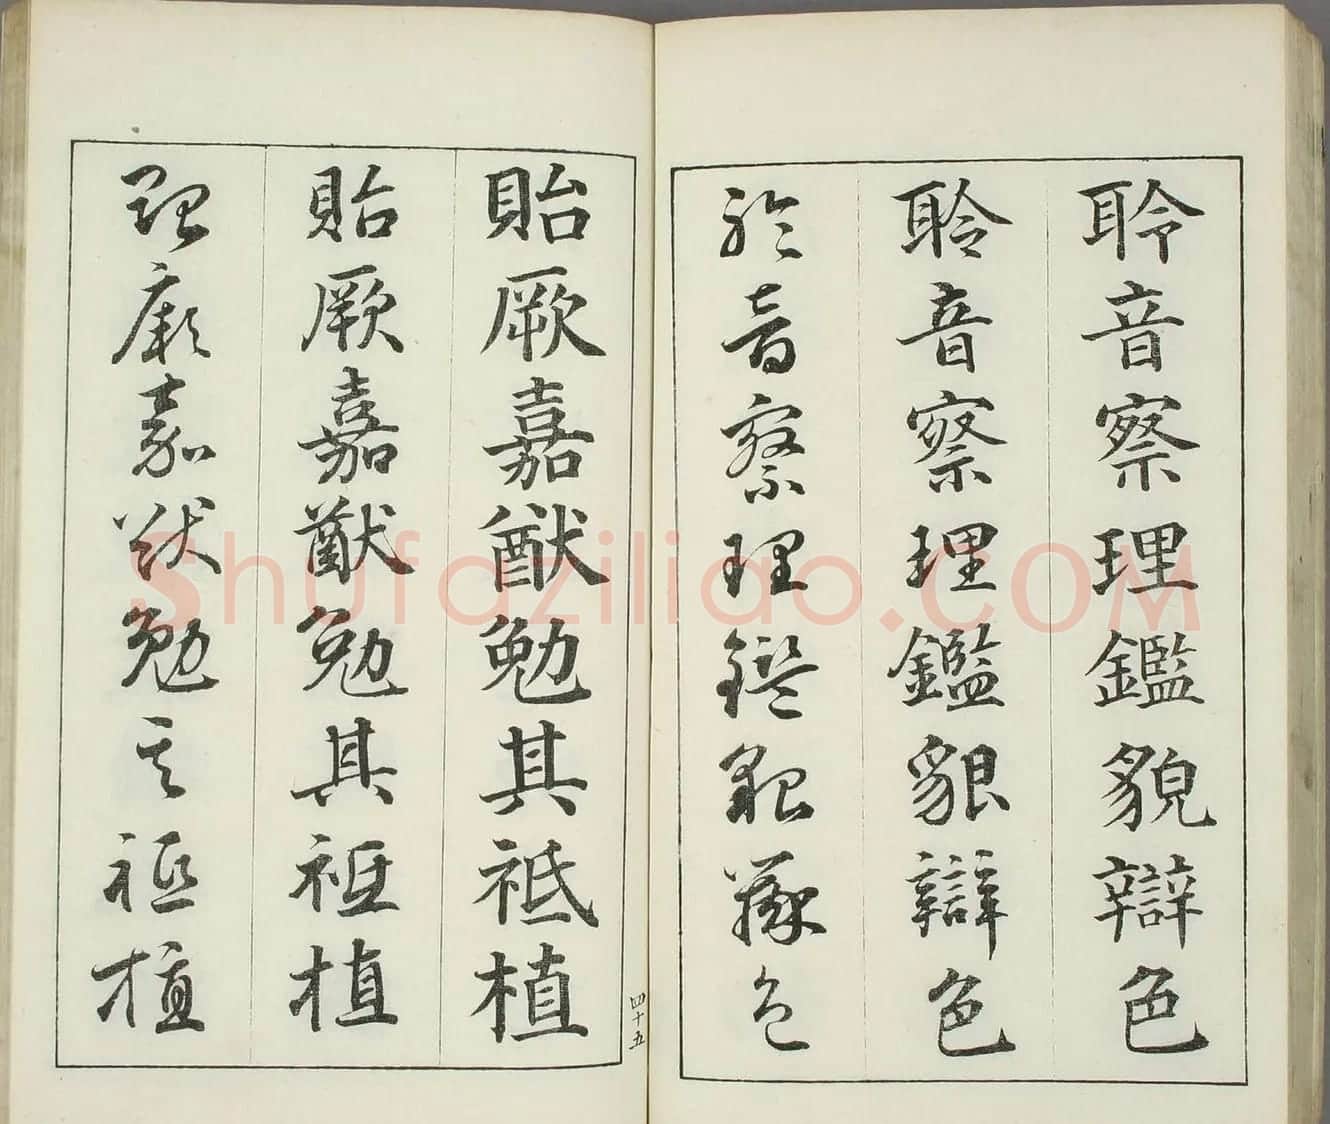 聆音察理鑑貌辯色
聆音察理鑑貌辯色
聆音察理鑑貌辯色
四十五
貽厥嘉猷勉其祗植
貽厥嘉猷勉其祗植
貽厥嘉猷勉其祗植
Shufaziliao.COM